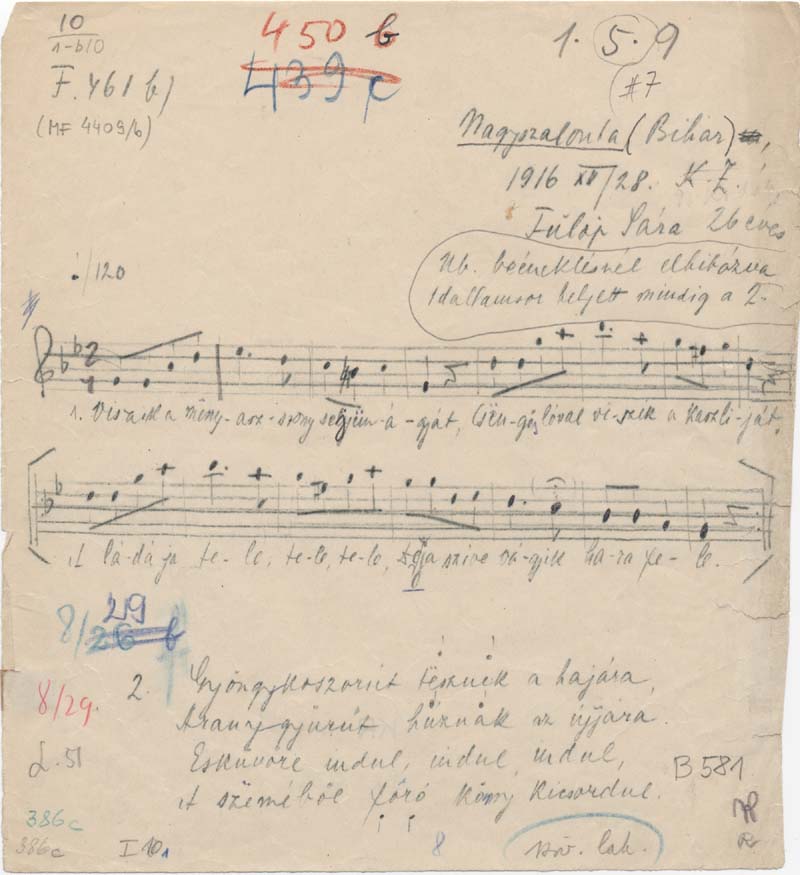 10
1-b/0
450 b
1. 5. 9
F. 461 b)
439 c
#7
(MF 4409/b)
Nagyszalonta (Bihar),
1916 XII/28. K. Z.
Fülöp Sára 26 éves
Nb. beéneklésnél elhibázva
1 dallamsor helyett mindig a 2.
/120
2
4
1. Viszik a meny-asz-szony selyem á-gyát, Csen-gős lóval vi-szik a
A lá-dá-ja te-le, te-le, te-le, szíve vá-gyik ha-za fe-le.
29
8/26 b
8/29.
2. Gyöngykoszorút tésznek a hajára,
Arany gyűrűt húznak az újjára.
Esküvőre indul, indul, indul,
A széméből forró köny kicsordul.
L. 51
B 581
386c
386c
I 10
8